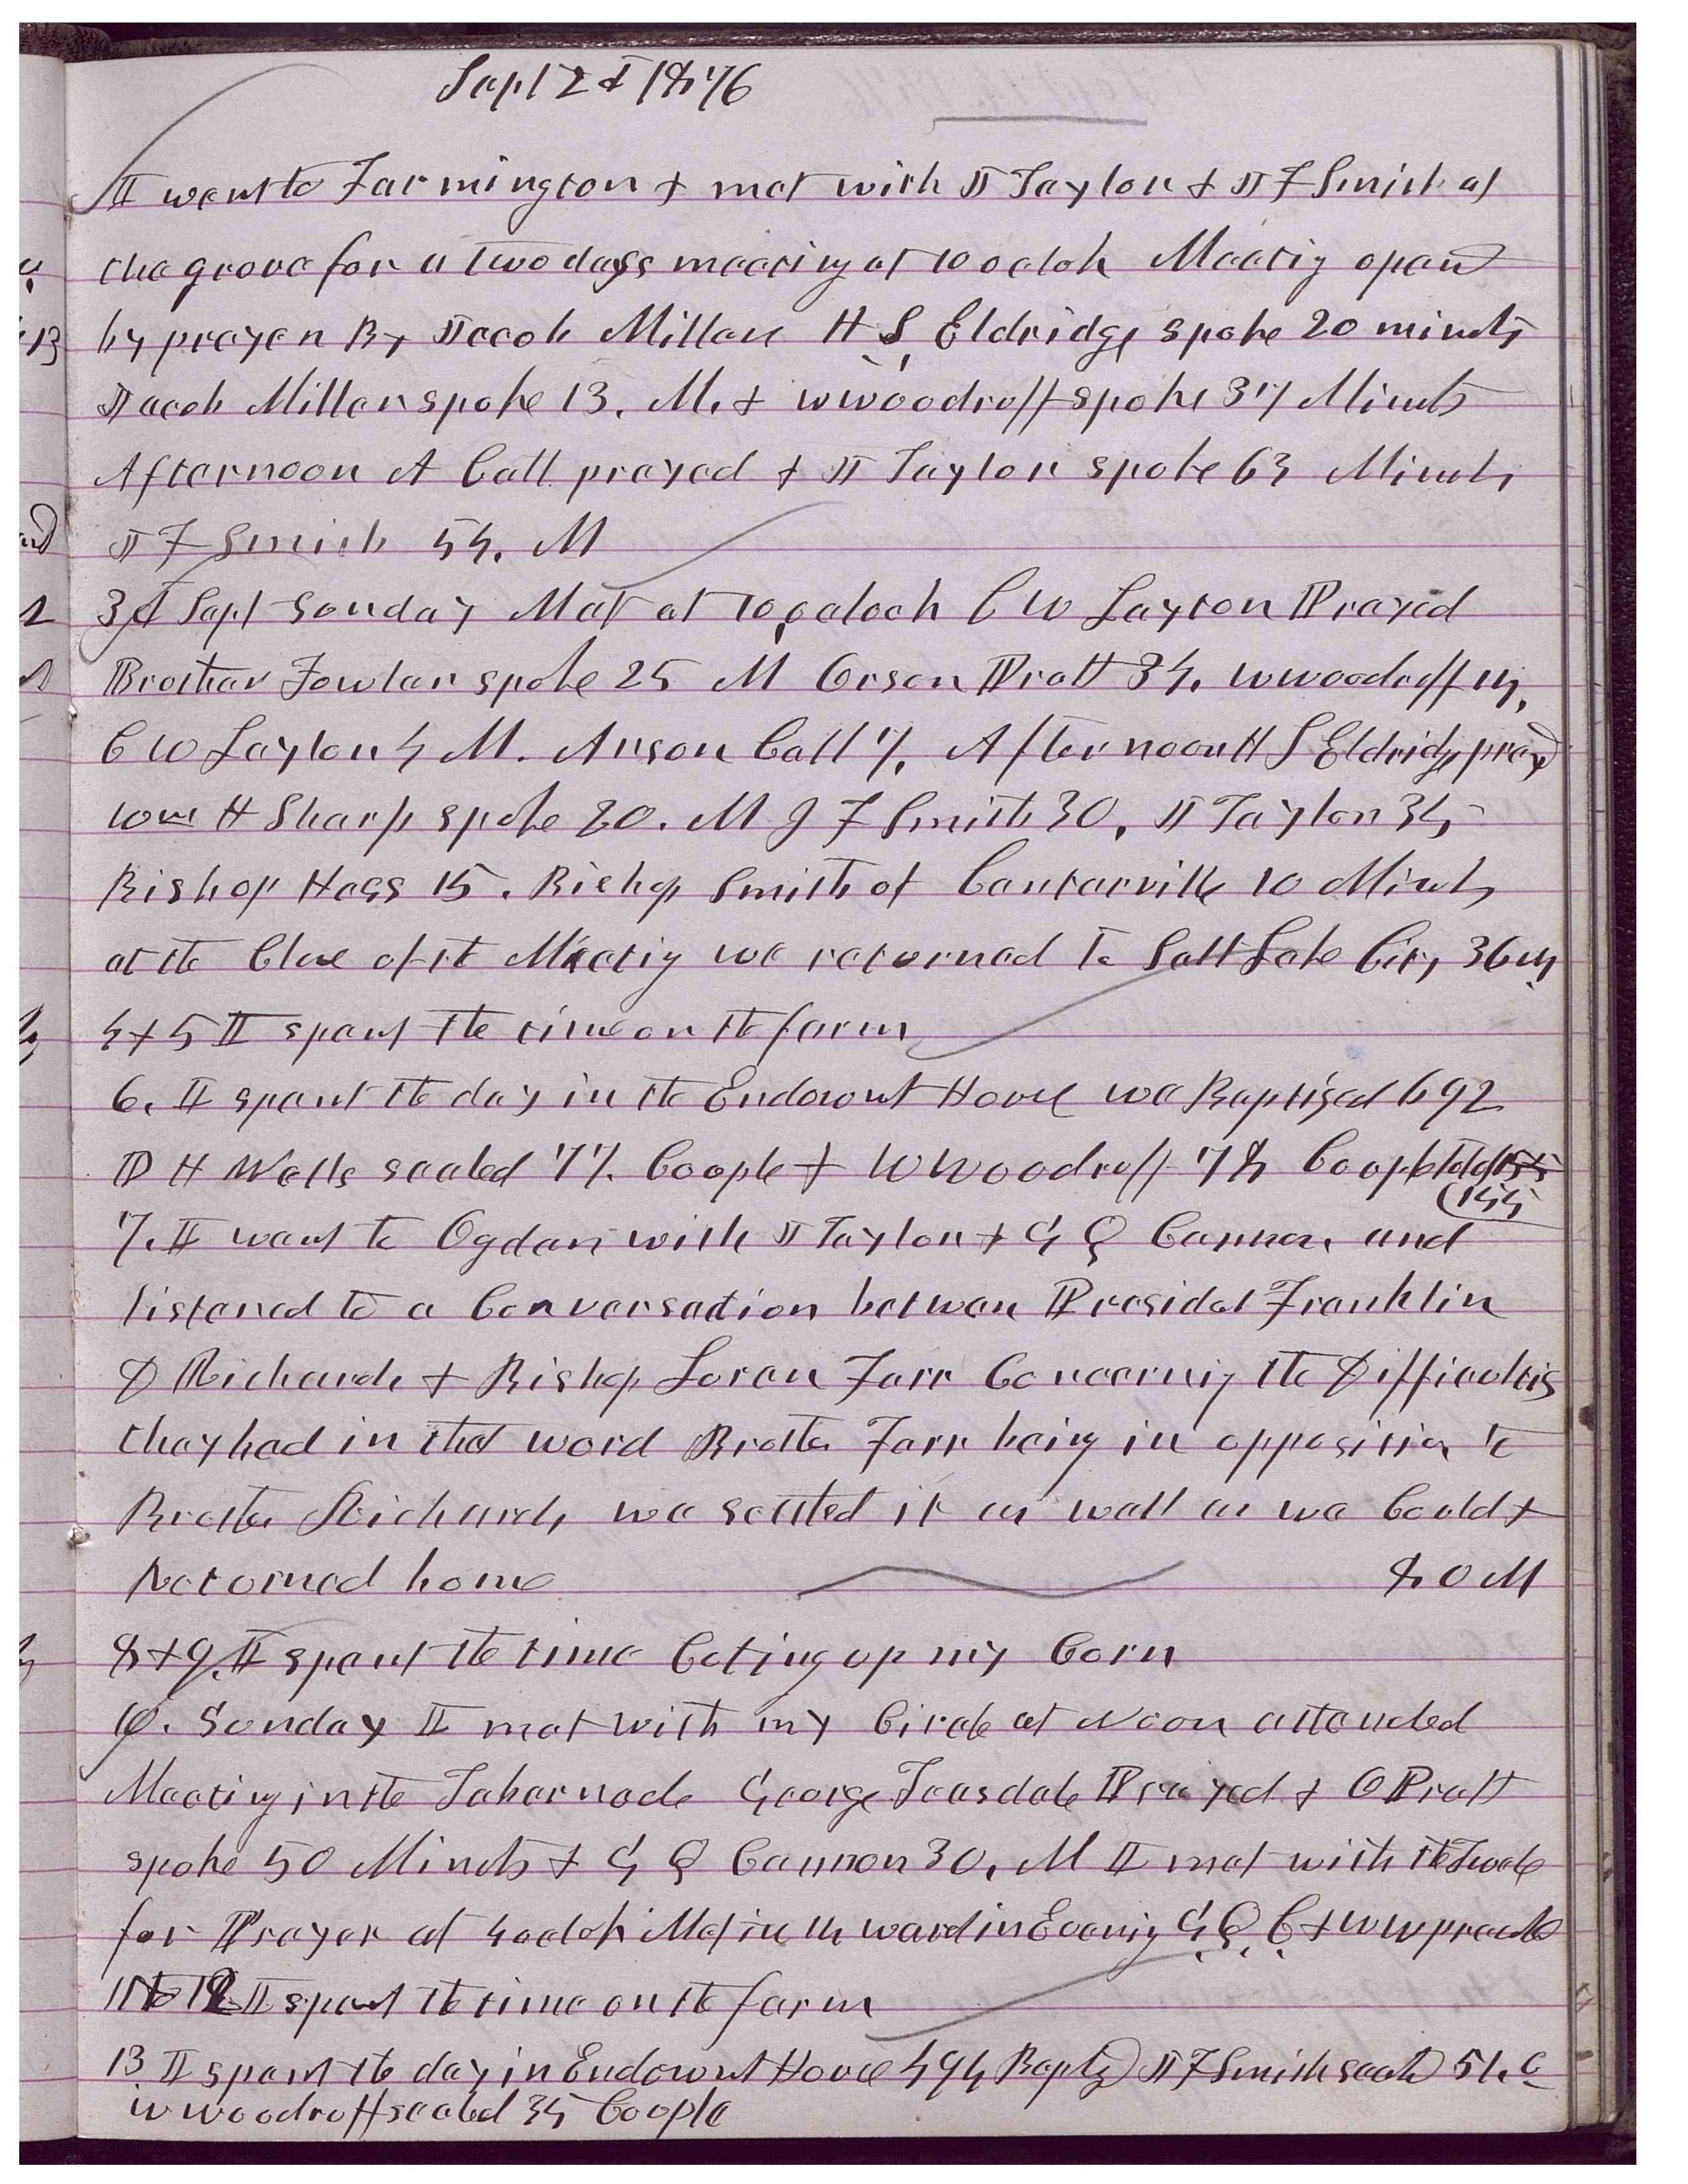 Sept 2d 1876
I went to Farmington & met with J Taylor & J F Smith at
the grove for a two days meeting at 10 oclok Meeting opend
by prayer By Jacob Miller H S Eldridge spoke 20 minuts
Jacob Miller spoke 13. M. & W Woodruff spoke 37 Minuts
Afternoon A Call prayed & J Taylor spoke 63 Minuts
J F Smith 54. M
3d Sept Sunday Met at 10, oclock C W Layton Prayed
Brother Fowler spoke 25 M Orson Pratt 34. W Woodruff 14,
C W Layton 4 M. Anson Call 7, Afternoon H S Eldridge prayd
H Sharp spoke 20. M J F Smith 30, J Taylor 34
Bishop Hess 15. Bishop Smith of Centerville 10 Minuts
at the Close of the Meetig we returned to Salt Lake City 36 M
4 & 5 I spent the time on the farm
6. I spent the day in the Endowmt House we Baptised 692
D H Wells sealed 77. Couple & W Woodruff 78 Couple Total 155
(155
7. I went to Ogden with J Taylor & G Q Cannon and
listened to a Conversation betwen Presidet Franklin
D Richards & Bishop Loren Farr Concernig the Difficulties
they had in that word Brother Farr being in opposition to
Brother Richards we settled it as well as we Could &
Returned home 80 M
8 & 9. I spent the time Coting up my Corn
10. Sunday I met with my Circle at Noon attended
Meeting in the Tabernacle George Teasdale Prayed & O Pratt
spoke 50 Minuts & G Q Cannon 30, M I met with the Twelve
for Prayer at 4 oclok Met in 14 ward in Evenig G Q C & W W preachd
11 to 12 I spent the time on the farm
13 I spent the day in Endowmt House 494 Baptzd J F Smith seald 51. C
W Woodruff sealed 34 Couple